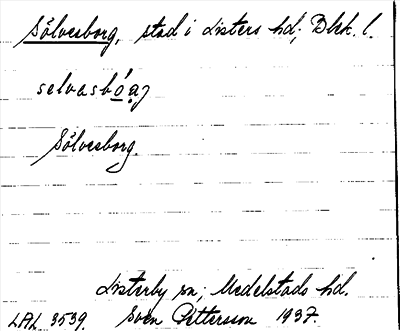 Sölvesborg, stad i Listers hd; Blek. l.
selvasbóaj
Sölvesborg.
Listerby sn; Medelstads hd.
LAL 3539. Sven Petterson 1937.